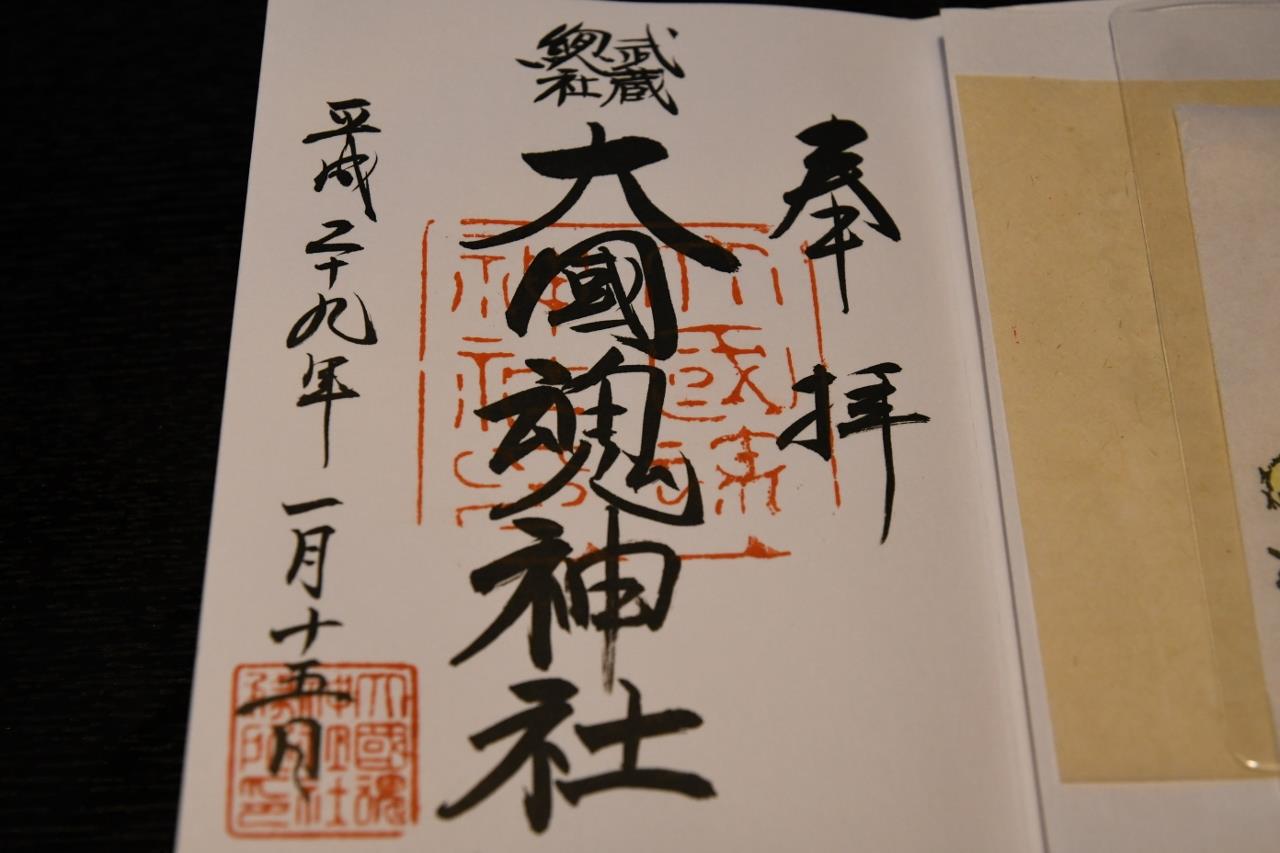 奉拝
武蔵
總社
大國魂神社
平成二十九年 一月十五日
大國魂
神社